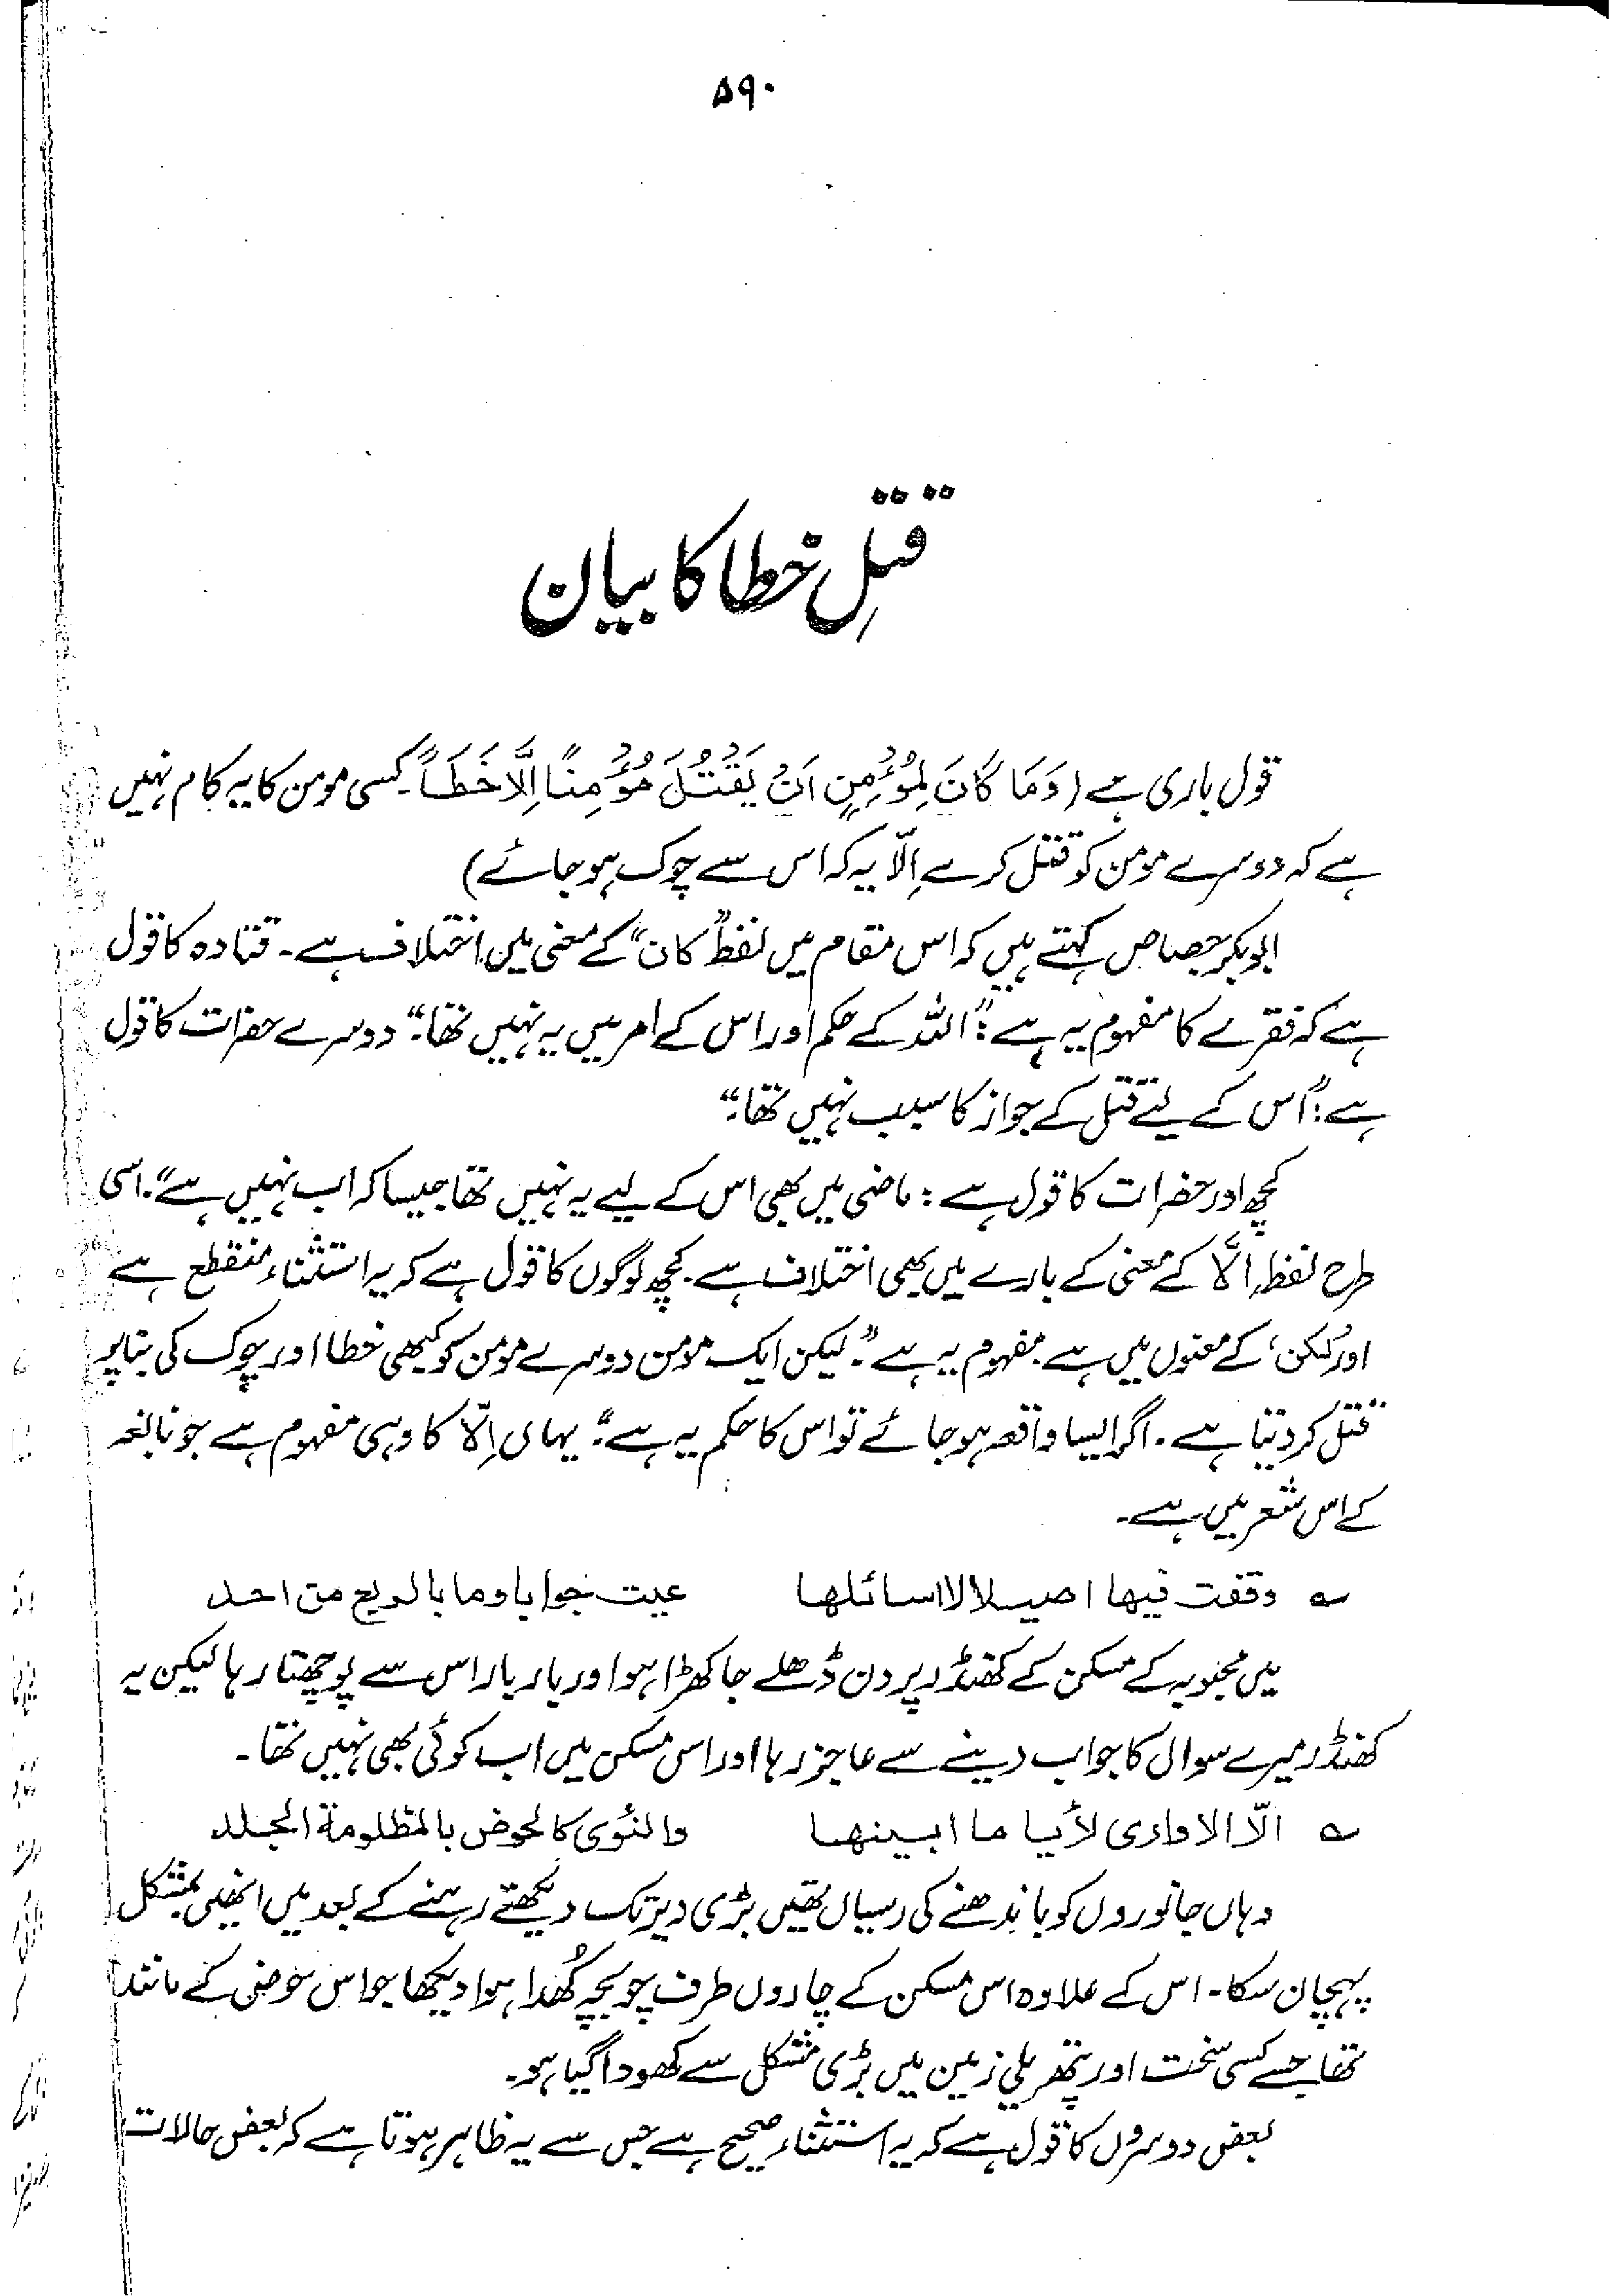 ۵۹۰
قتلِ خطا کا بیان
قول باری ہے (وَمَا كَانَ لِمُؤْمِنٍ اَنْ يَقْتُلَ مُؤْمِنًا اِلَّا خَطَأً۔ کسی مومن کا یہ کام نہیں
ہے کہ دوسرے مومن کو قتل کرے اِلّا یہ کہ اس سے چوک ہو جائے)
ابوبکر جصاص کہتے ہیں کہ اس مقام میں لفظ "کان" کے معنی میں اختلاف ہے۔ قتادہ کا قول
ہے کہ فقرے کا مفہوم یہ ہے: "اللہ کے حکم اور اس کے امر میں یہ نہیں تھا۔" دوسرے حضرات کا قول
ہے: "اس کے لئے قتل کے جواز کا سبب نہیں تھا۔"
کچھ اور حضرات کا قول ہے: ماضی میں بھی اس کے لیے یہ نہیں تھا جیسا کہ اب نہیں ہے"۔ اسی
طرح لفظ اِلَّا کے معنی کے بارے میں بھی اختلاف ہے۔ کچھ لوگوں کا قول ہے کہ یہ استثناء منقطع ہے
اور 'لکن' کے معنوں میں ہے۔ مفہوم یہ ہے "۔ لیکن ایک مومن دوسرے مومن کو کبھی خطا اور چوک کی بنا پر
قتل کر دیتا ہے۔ اگر ایسا واقعہ ہو جائے تو اس کا حکم یہ ہے"۔ یہاں اِلّا کا وہی مفہوم ہے جو نابغہ
کے اس شعر میں ہے۔
؎ وقفت فیھا اصیلالا اسائلھا عیت جوابا وما بالربع من احد
میں محبوبہ کے مسکن کے کھنڈر پر دن ڈھلے جا کھڑا ہوا اور بار بار اس سے پوچھتا رہا لیکن یہ
کھنڈر میرے سوال کا جواب دینے سے عاجز رہا اور اس مسکن میں اب کوئی بھی نہیں تھا۔
؎ الّا الاواری لأیا ما ابینھا والنؤی کالحوض بالمظلومة الجلد
وہاں جانوروں کو باندھنے کی رسیاں تھیں بڑی دیر تک دیکھتے رہنے کے بعد میں انھیں بمشکل
پہچان سکا۔ اس کے علاوہ اس مسکن کے چاروں طرف چوبچہ کُھدا ہوا دیکھا جو اس حوض کے مانند
تھا جسے کسی سخت اور پتھریلی زمین میں بڑی مشکل سے کھودا گیا ہو۔
بعض دوسروں کا قول ہے کہ یہ استثناء صحیح ہے جس سے یہ ظاہر ہوتا ہے کہ بعض حالات